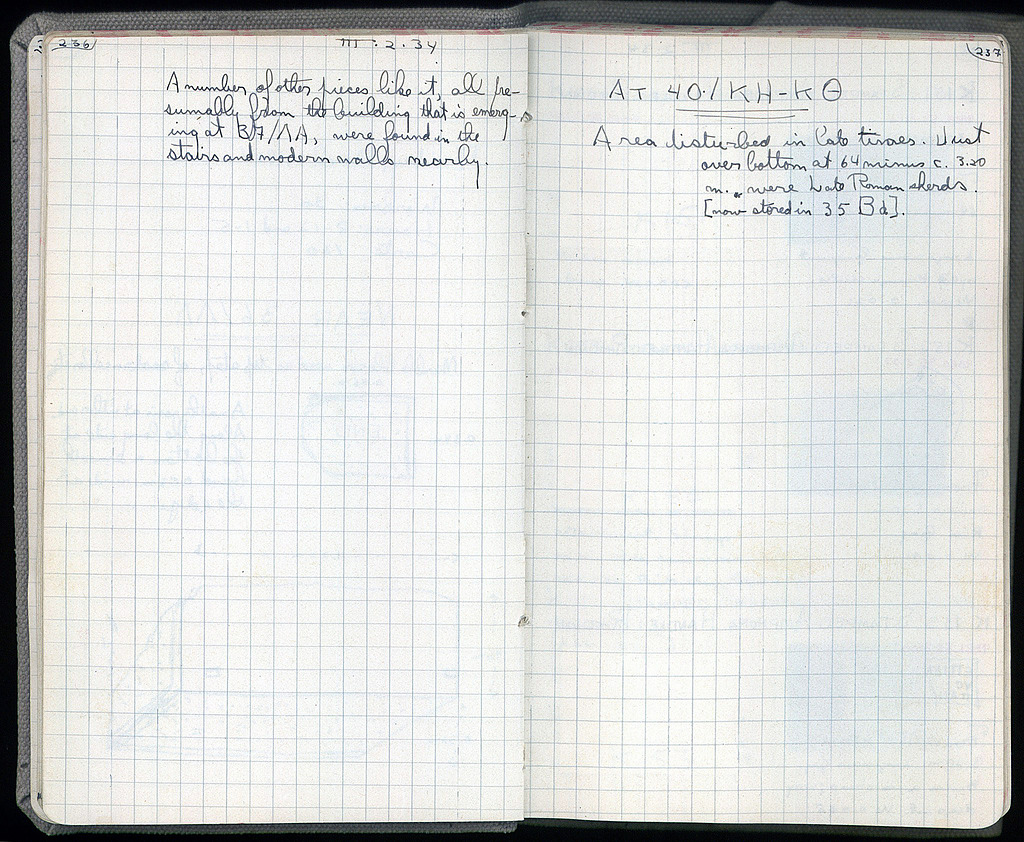 236
III . 2 . 34
A number of other pieces like it, all pre-
sumably from the building that is emerg-
ing at 37/ΛΑ, were found in the
stairs and modern walls nearby.
237
AT 40/KH-KΘ
Area disturbed in late times. Just
over bottom at 64 minus c. 3.20
m. were Late Roman sherds.
[now stored in 35 B d].